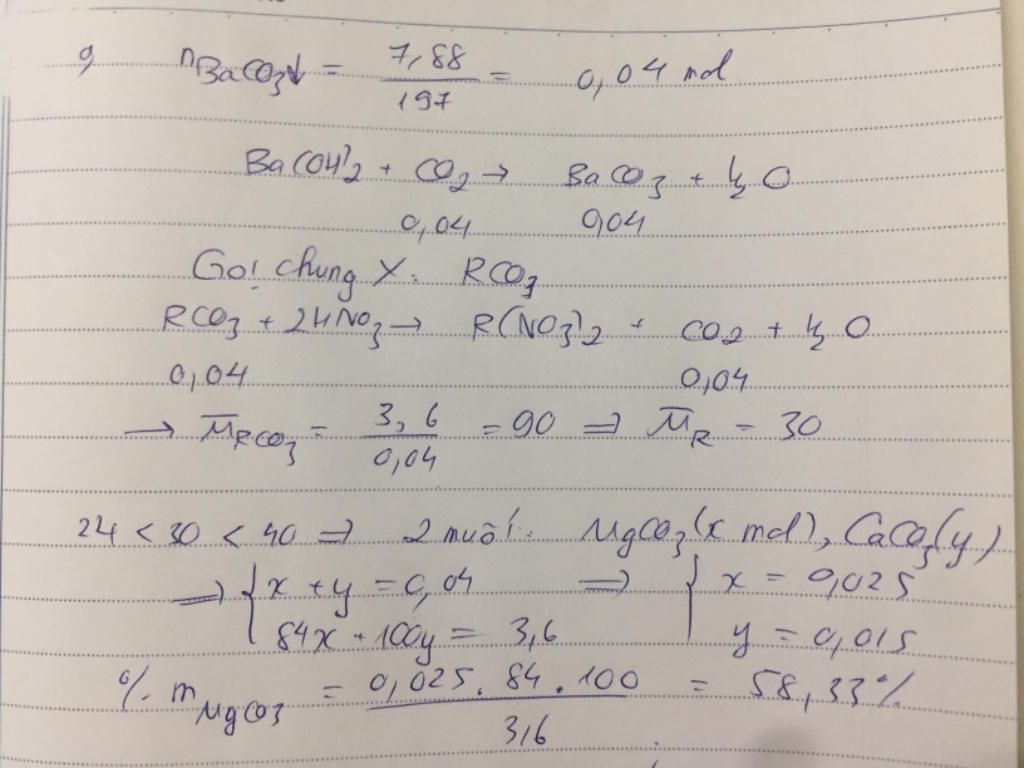 9 nBaCO3↓ = 7,88 / 197 = 0,04 mol
Ba(OH)2 + CO2 → BaCO3 + H2O
0,04 0,04
Gọi chung X: RCO3
RCO3 + 2HNO3 → R(NO3)2 + CO2 + H2O
0,04 0,04
→ M̅RCO3 = 3,6 / 0,04 = 90 ⇒ M̅R = 30
24 < 30 < 40 ⇒ 2 muối: MgCO3 (x mol), CaCO3 (y)
⇒ { x + y = 0,04 ⇒ { x = 0,025
84x + 100y = 3,6 y = 0,015
% mMgCO3 = 0,025.84.100 / 3,6 = 58,33%